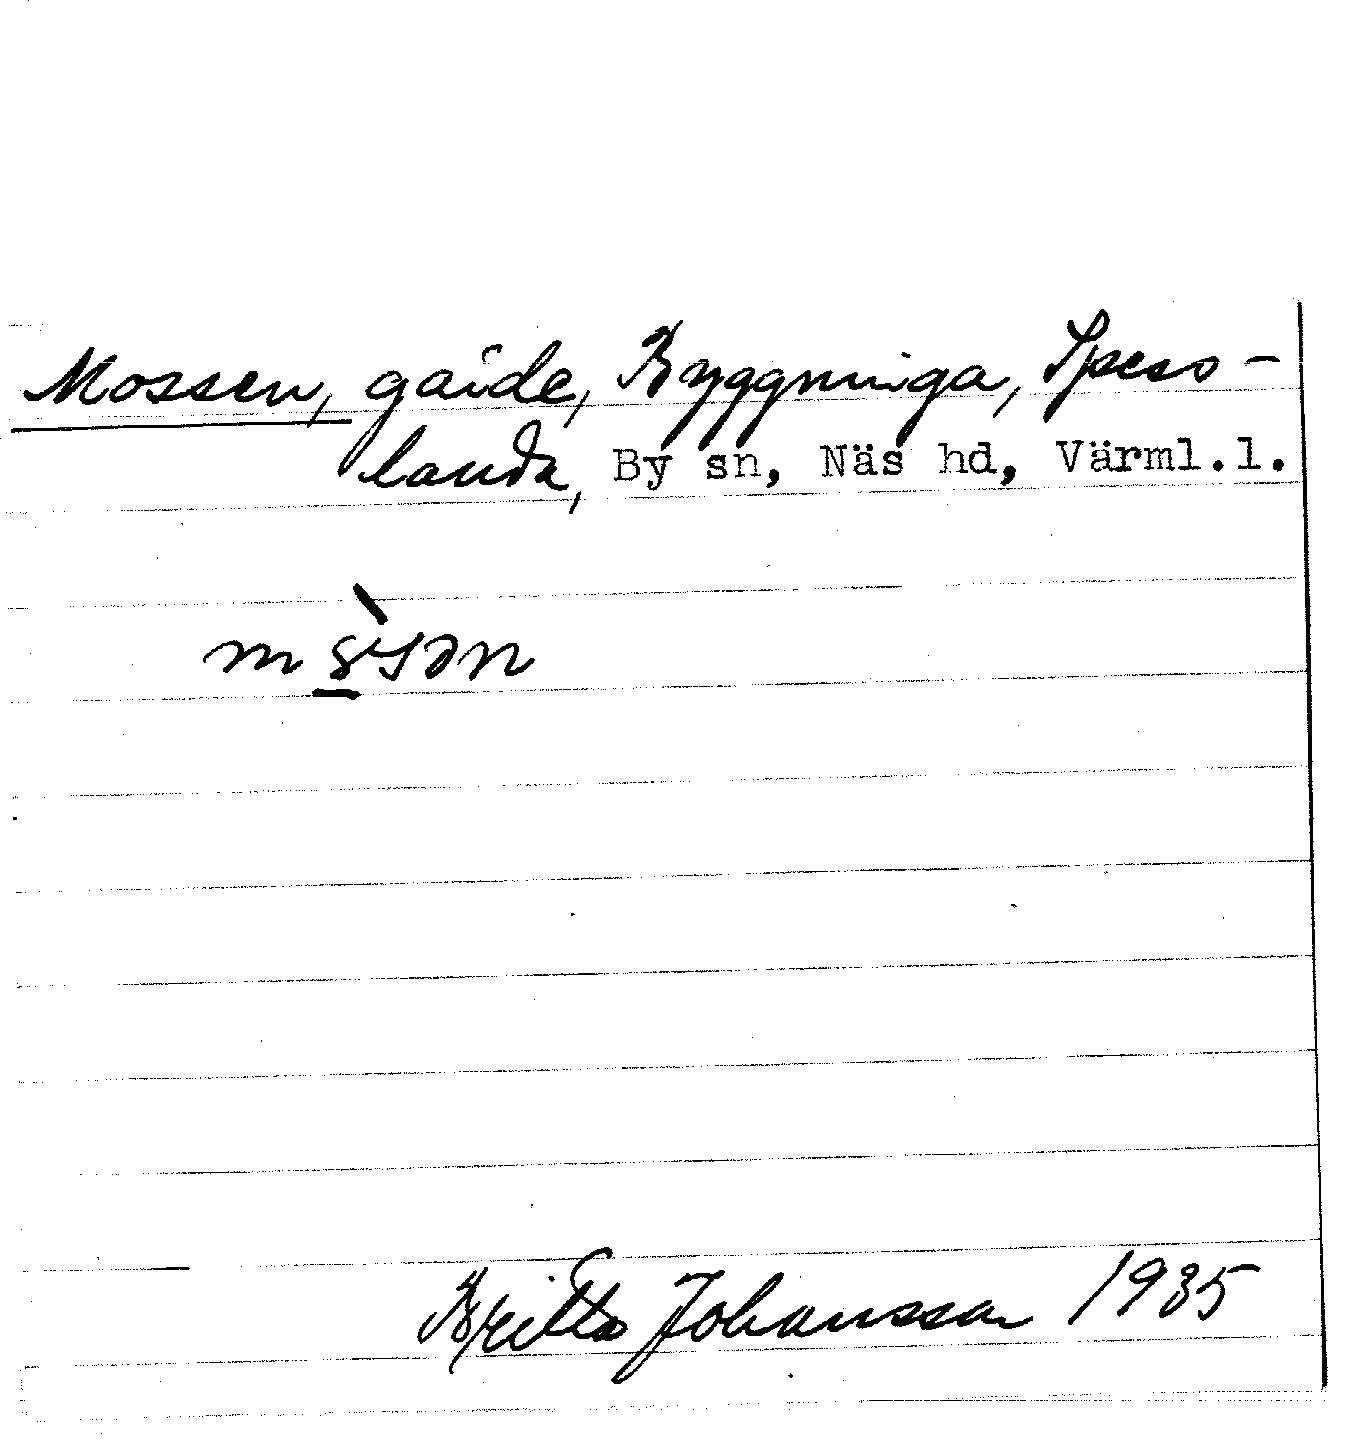 Mossen, gärde, Byggninga, Spess-
landa, By sn, Näs hd, Värml.l.
Britta Johansson 1935